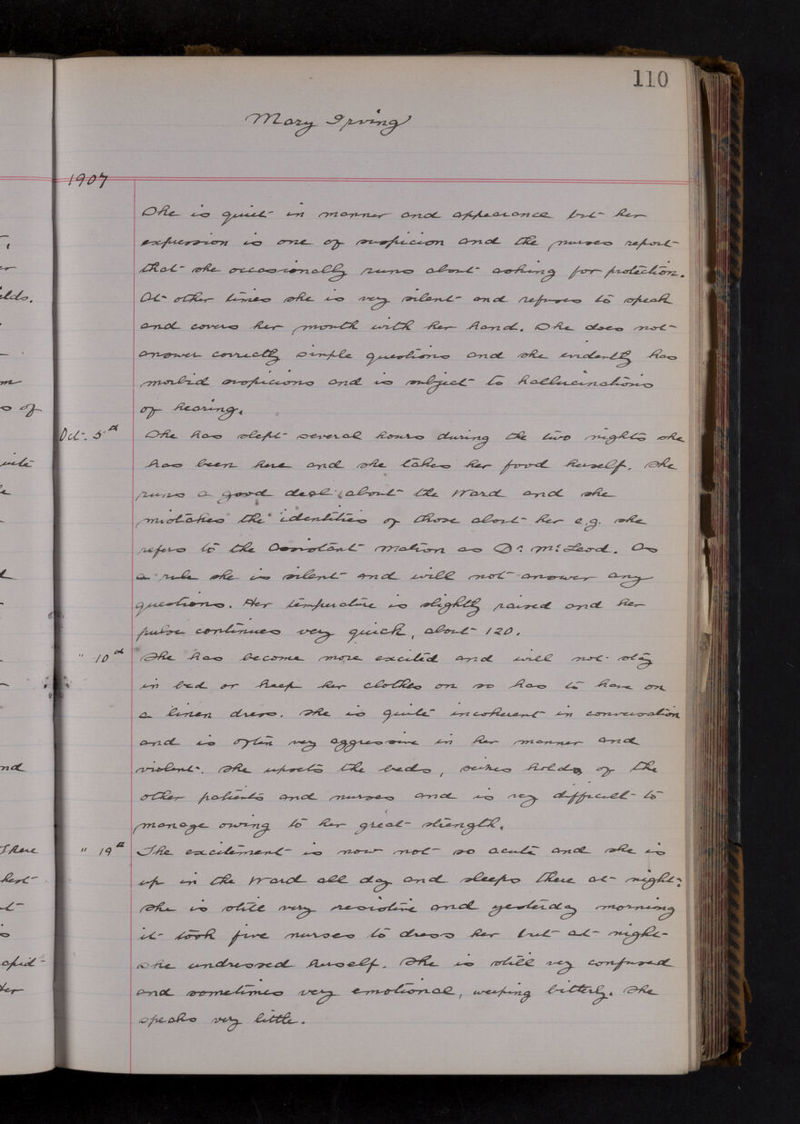 110
Mary Irving
1907
She is quiet in manner and appearance but her
expression is one of suspicion and the nurses report
that she occasionally runs about asking for protection.
At other times she is very silent and refuses to speak
and covers her mouth with her hand. She does not
answer correctly simple questions and she evidently has
morbid suspicions and is subject to hallucinations
of hearing.
Oct. 5th She has slept several hours during the two nights she
has been here and she takes her food herself. She
runs a good deal about the Ward and she
mistakes the identities of those about her e.g. she
refers to the Assistant Matron as Dr. McLeod. As
a rule she is silent and will not answer any
questions. Her temperature is slightly raised and her
pulse continues very quick, about 120.
" 10th She has become more excited and will not stay
in bed or keep her clothes on so has to have on
a linen dress. She is quite incoherent in conversation
and is often very aggressive in her manner and
violent. She upsets the beds, seizes holds of the
other patients and nurses and is very difficult to
manage owing to her great strength.
" 19th The excitement is now not so acute and she is
up in the Ward all day and sleeps there at night.
She is still very resistive and yesterday morning
it took five nurses to dress her but at night
she undressed herself. She is still very confused
and sometimes very emotional, weeping bitterly. She
speaks very little.